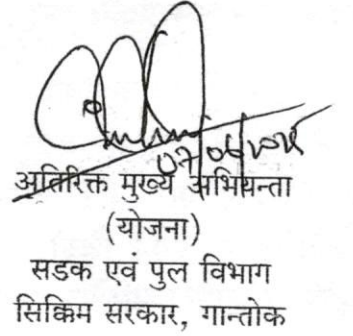 अतिरिक्त मुख्य अभियन्ता
(योजना)
सडक एवं पुल विभाग
सिक्किम सरकार, गान्तोक